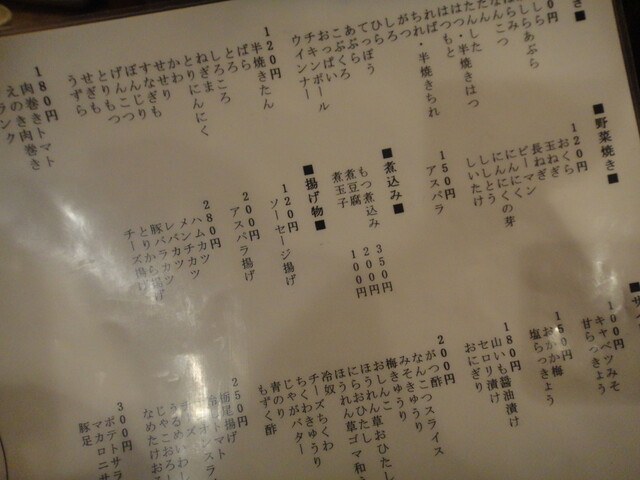 しらあぶら
はらみ
なんこつ
たん
たんした
はつ・半焼きはつ
はつもと
ればー・半焼きちれ
がつ
しろ
ひら
てっぽう
あぶら
こぶくろ
おっぱい
チキンボール
ウインナー
120円
半焼きたん
ばら
とろ
しろころ
ねぎま
とりにんにく
かわ
せせり
すなぎも
ぼんじり
げんこつ
とりもつ
せぎも
うずら
180円
肉巻きトマト
えのき肉巻き
■野菜焼き■
120円
おくら
玉ねぎ
長ねぎ
ピーマン
にんにく
にんにくの芽
ししとう
しいたけ
150円
アスパラ
■煮込み■
もつ煮込み 350円
煮豆腐 200円
煮玉子 100円
■揚げ物■
120円
ソーセージ揚げ
200円
アスパラ揚げ
280円
ハムカツ
メンチカツ
レバカツ
豚バラカツ
とりから揚げ
チーズ揚げ
100円
キャベツみそ
甘らっきょう
150円
おかか梅
塩らっきょう
180円
山いも醤油漬け
セロリ漬け
おにぎり
200円
がつ酢
なんこつスライス
みそきゅうり
梅きゅうり
おしんこ
ほうれん草おひたし
にらおひたし
ほうれん草ゴマ和え
冷奴
チーズちくわ
ちくわきゅうり
じゃがバター
青のり
もずく酢
250円
栃尾揚げ
じゃこおろし
なめたけおろし
300円
ポテトサラ
マカロニサ
豚足